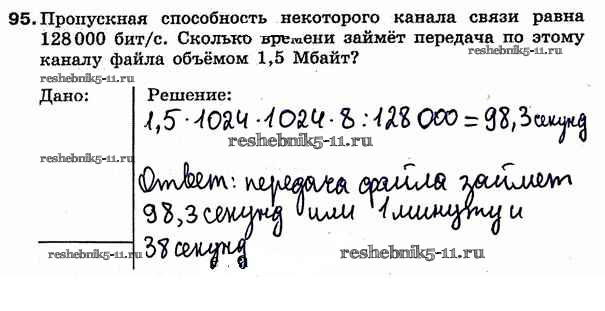 95. Пропускная способность некоторого канала связи равна
128 000 бит/с. Сколько времени займёт передача по этому
каналу файла объёмом 1,5 Мбайт?
reshebnik5-11.ru
reshebnik5-11.ru
Дано:
Решение:
1,5 · 1024 · 1024 · 8 : 128 000 = 98,3 секунд
reshebnik5-11.ru
reshebnik5-11.ru
Ответ: передача файла займет
98,3 секунд или 1 минуту и
38 секунд
reshebnik5-11.ru
reshebnik5-11.ru